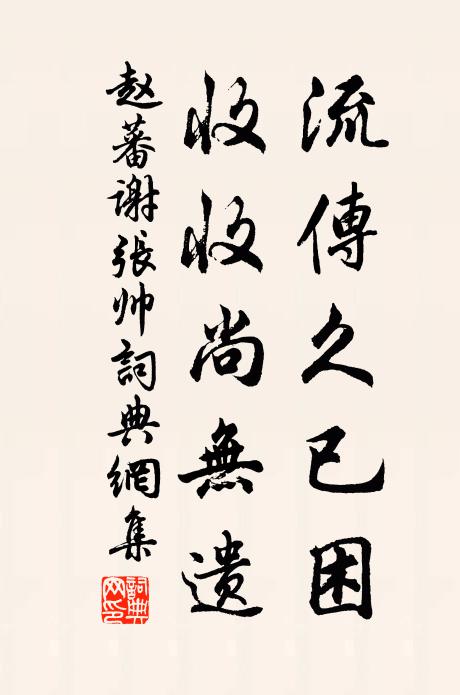 流傳久已困
收收尚無遗
赵蕃谢張帅詞典網集
詞典网印